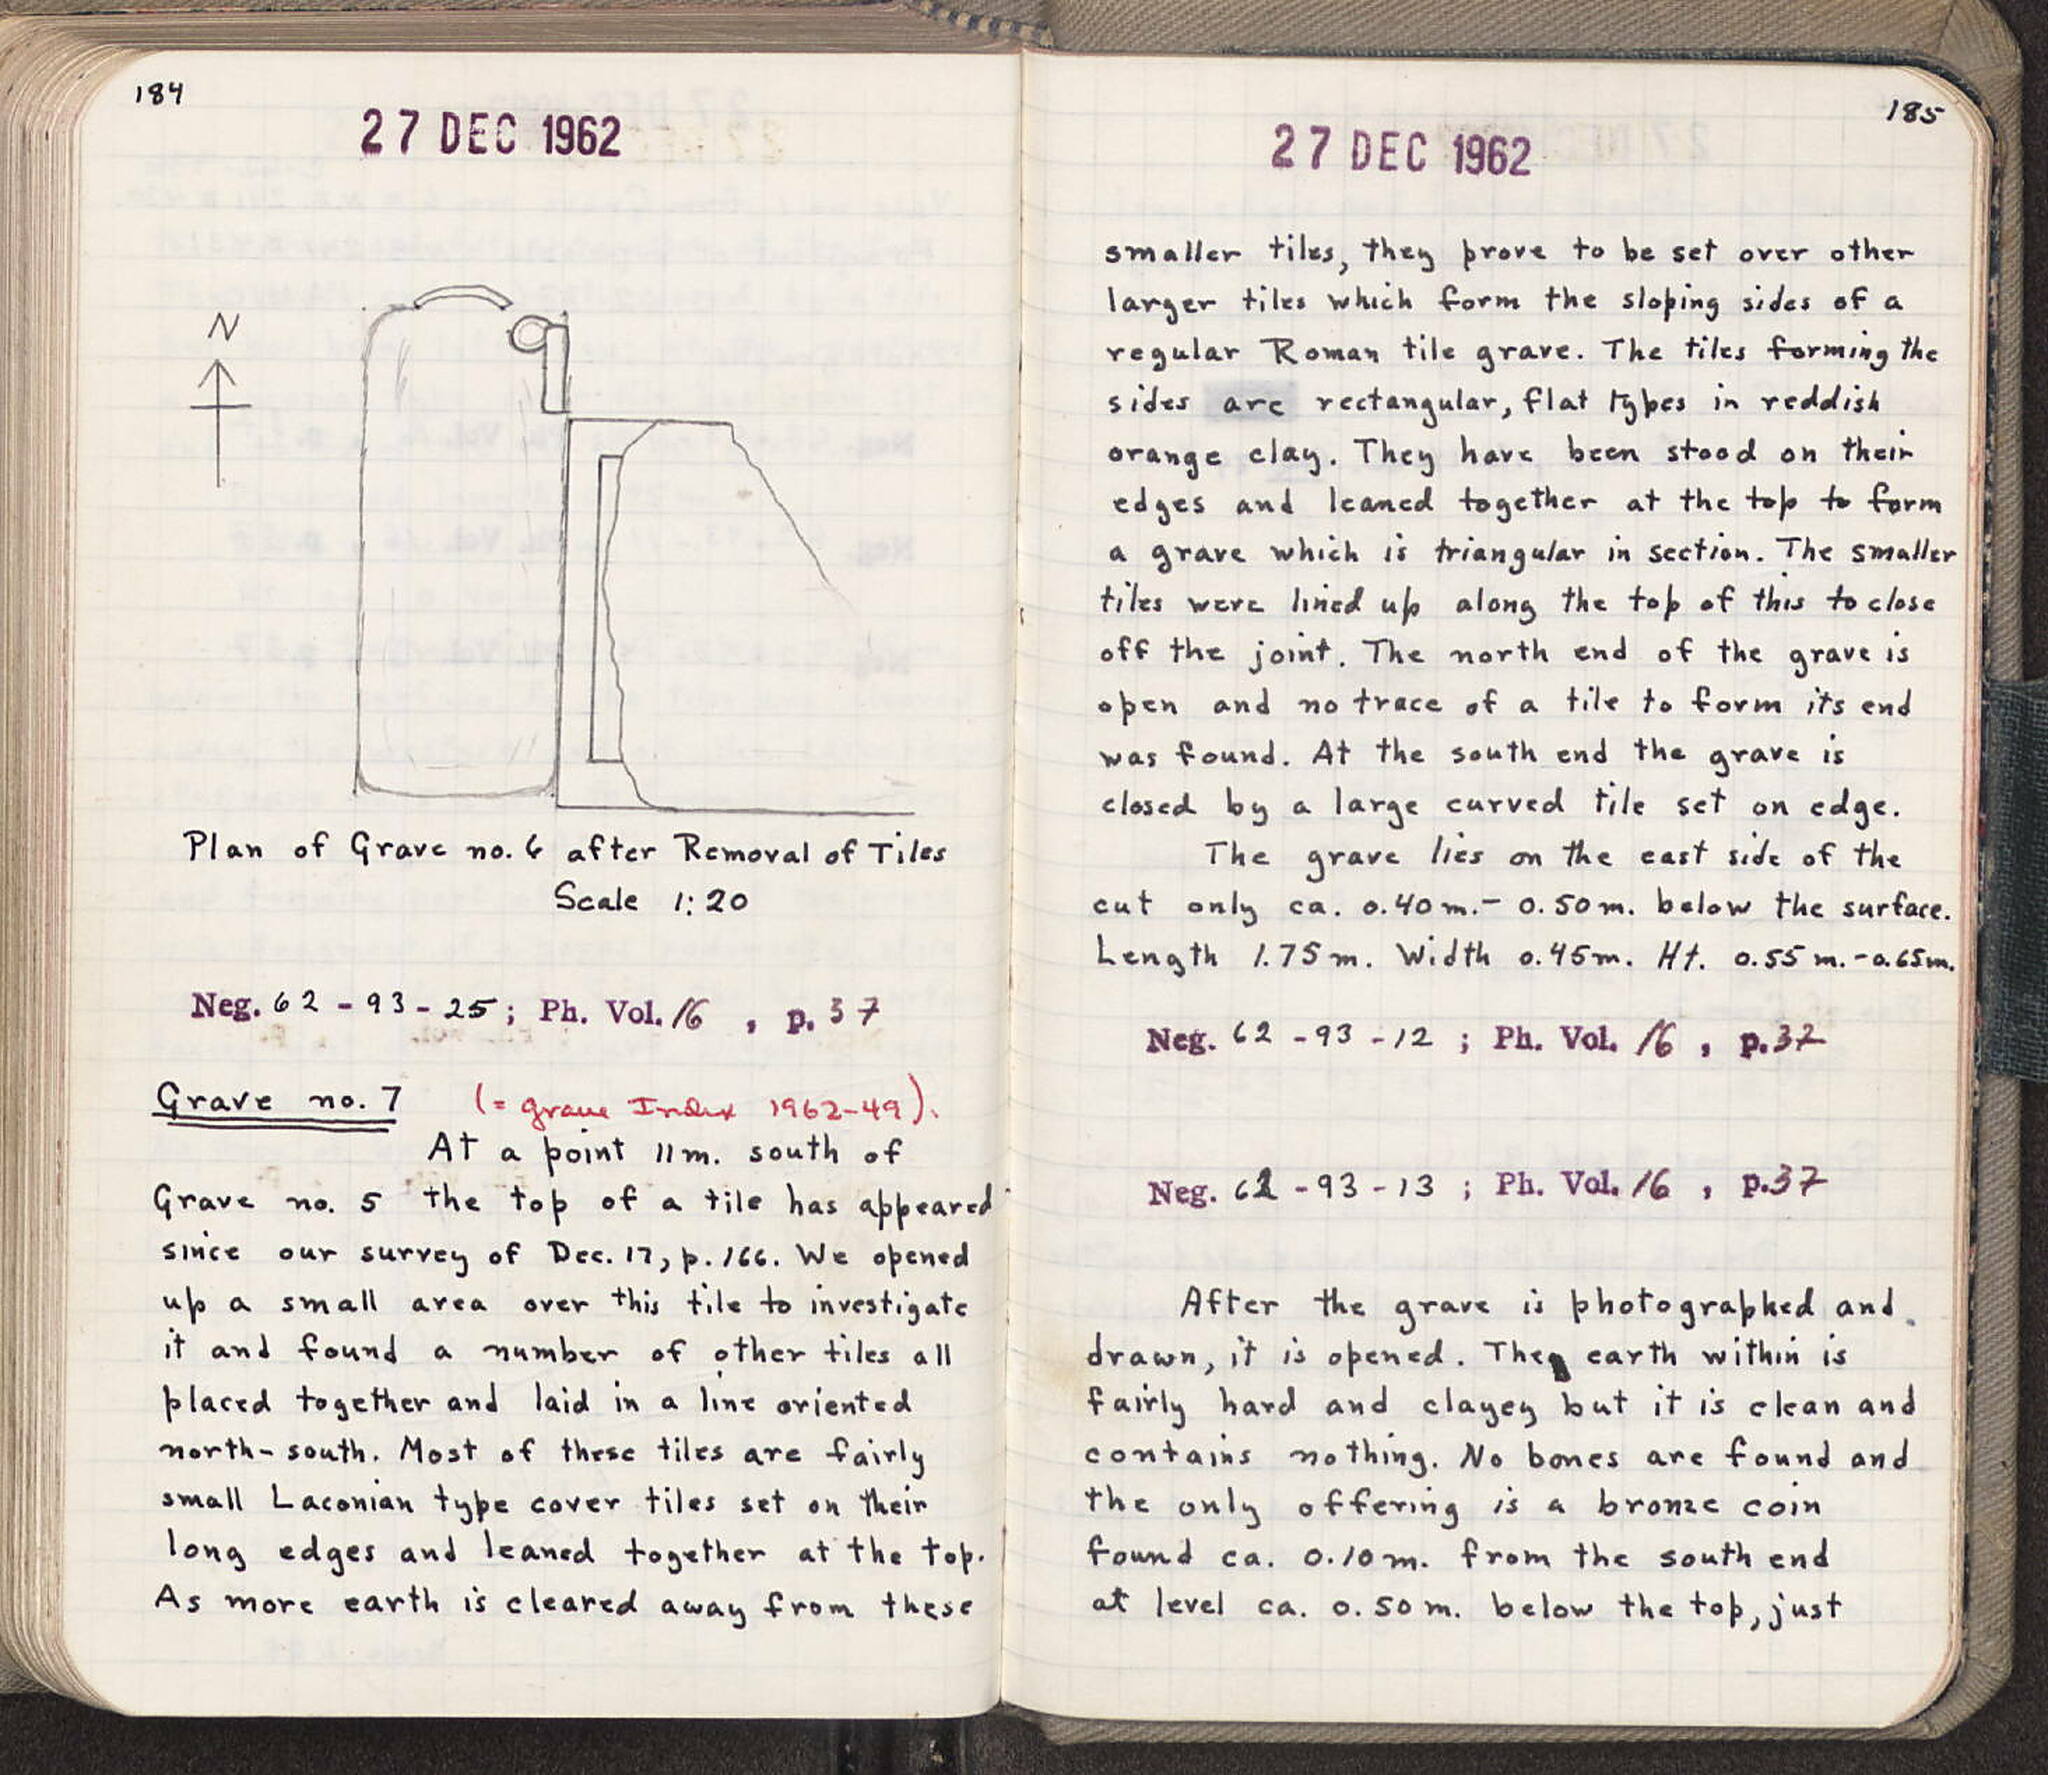 184
27 DEC 1962
N
Plan of Grave no. 6 after Removal of Tiles
Scale 1:20
Neg. 62 - 93 - 25 ; Ph. Vol. 16 , p. 37
Grave no. 7 (= grave Index 1962-49).
At a point 11m. south of
Grave no. 5 the top of a tile has appeared
since our survey of Dec. 17, p. 166. We opened
up a small area over this tile to investigate
it and found a number of other tiles all
placed together and laid in a line oriented
north-south. Most of these tiles are fairly
small Laconian type cover tiles set on their
long edges and leaned together at the top.
As more earth is cleared away from these
185
27 DEC 1962
smaller tiles, they prove to be set over other
larger tiles which form the sloping sides of a
regular Roman tile grave. The tiles forming the
sides are rectangular, flat types in reddish
orange clay. They have been stood on their
edges and leaned together at the top to form
a grave which is triangular in section. The smaller
tiles were lined up along the top of this to close
off the joint. The north end of the grave is
open and no trace of a tile to form its end
was found. At the south end the grave is
closed by a large curved tile set on edge.
The grave lies on the east side of the
cut only ca. 0.40m.- 0.50m. below the surface.
Length 1.75m. Width 0.45m. Ht. 0.55m.-0.65m.
Neg. 62 - 93 - 12 ; Ph. Vol. 16 , p. 37
Neg. 62 - 93 - 13 ; Ph. Vol. 16 , p. 37
After the grave is photographed and
drawn, it is opened. The earth within is
fairly hard and clayey but it is clean and
contains nothing. No bones are found and
the only offering is a bronze coin
found ca. 0.10m. from the south end
at level ca. 0.50m. below the top, just